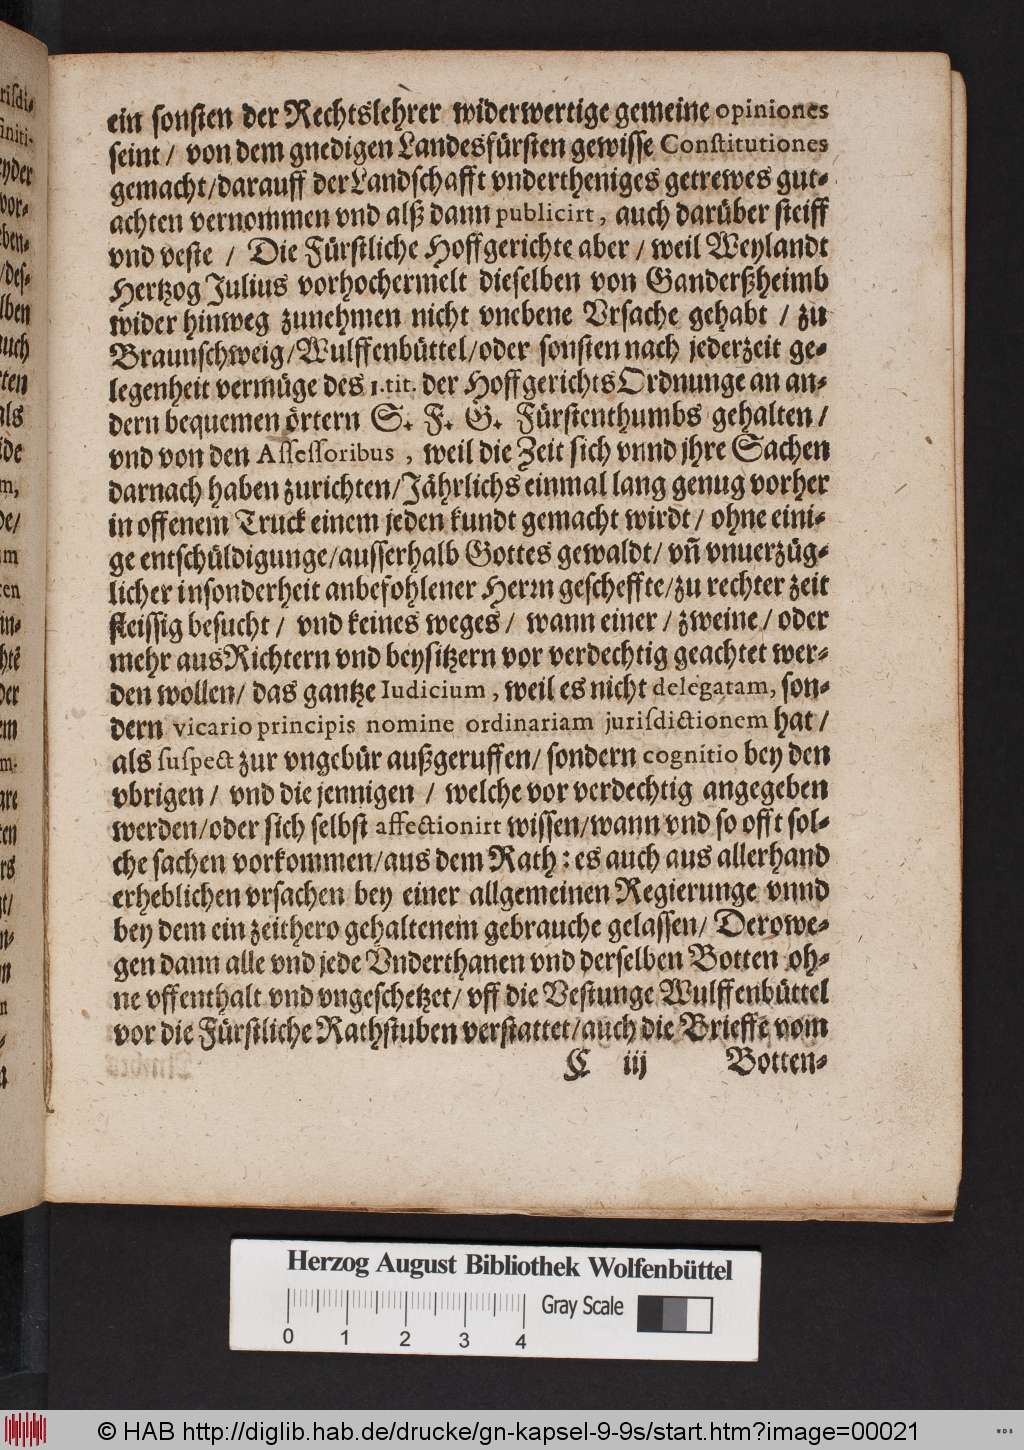 ein sonſten der Rechtslehrer widerwertige gemeine opiniones
ſeint / von dem gnedigen Landesfürſten gewiſſe Conſtitutiones
gemacht/darauff der Landſchafft vndertheniges getrewes gut-
achten vernommen vnd alß dann publicirt, auch darüber ſteiff
vnd veſte / Die Fürſtliche Hoffgerichte aber / weil Weylandt
Hertzog Julius vorhochermelt dieſelben von Ganderßheimb
wider hinweg zunehmen nicht vnebene Vrſache gehabt / zu
Braunſchweig/Wulffenbüttel/oder ſonſten nach jederzeit ge-
legenheit vermüge des 1. tit. der HoffgerichtsOrdnunge an an-
dern bequemen örtern S. F. G. Fürſtenthumbs gehalten /
vnd von den Aſſeſſoribus, weil die Zeit ſich vnnd jhre Sachen
darnach haben zurichten/Jährlichs einmal lang genug vorher
in offenem Truck einem jeden kundt gemacht wirdt/ ohne eini-
ge entſchüldigunge/auſſerhalb Gottes gewaldt/ vñ vnuerzüg-
licher inſonderheit anbefohlener Herrn geſcheffte/zu rechter zeit
fleiſſig beſucht / vnd keines weges / wann einer / zweine / oder
mehr aus Richtern vnd beyſitzern vor verdechtig geachtet wer-
den wollen/ das gantze Iudicium, weil es nicht delegatam, ſon-
dern vicario principis nomine ordinariam juriſdictionem hat /
als ſuſpect zur vngebür außgeruffen/ ſondern cognitio bey den
vbrigen / vnd die jennigen / welche vor verdechtig angegeben
werden/oder ſich ſelbſt affectionirt wiſſen/wann vnd ſo offt ſol-
che ſachen vorkommen/aus dem Rath: es auch aus allerhand
erheblichen vrſachen bey einer allgemeinen Regierunge vnnd
bey dem ein zeithero gehaltenem gebrauche gelaſſen/ Derowe-
gen dann alle vnd jede Vnderthanen vnd derſelben Botten oh-
ne vffenthalt vnd vngeſchetzet/ vff die Veſtunge Wulffenbüttel
vor die Fürſtliche Rathſtuben verſtattet/auch die Brieffe vom
C iij Botten-
Herzog August Bibliothek Wolfenbüttel
Gray Scale
0 1 2 3 4
© HAB http://diglib.hab.de/drucke/gn-kapsel-9-9s/start.htm?image=00021